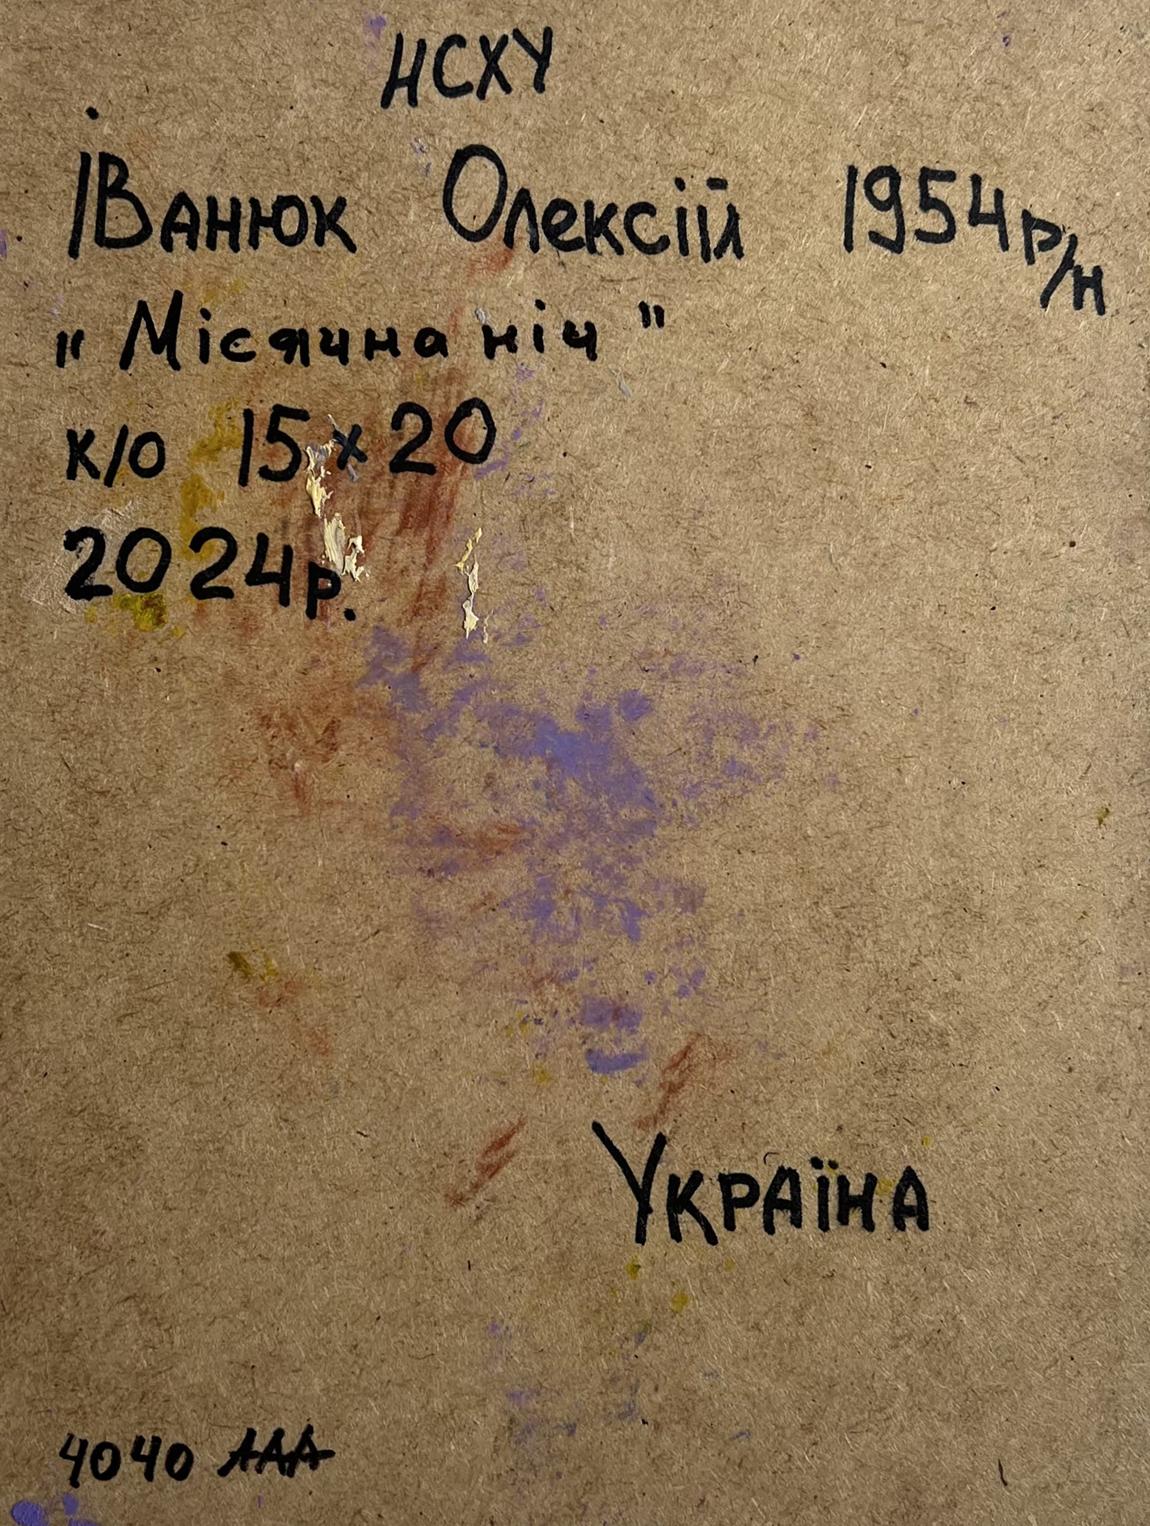 НСХУ
Іванюк Олексій 1954 р/н
"Місячна ніч"
к/о 15 х 20
2024р.
Україна
4040 ААА